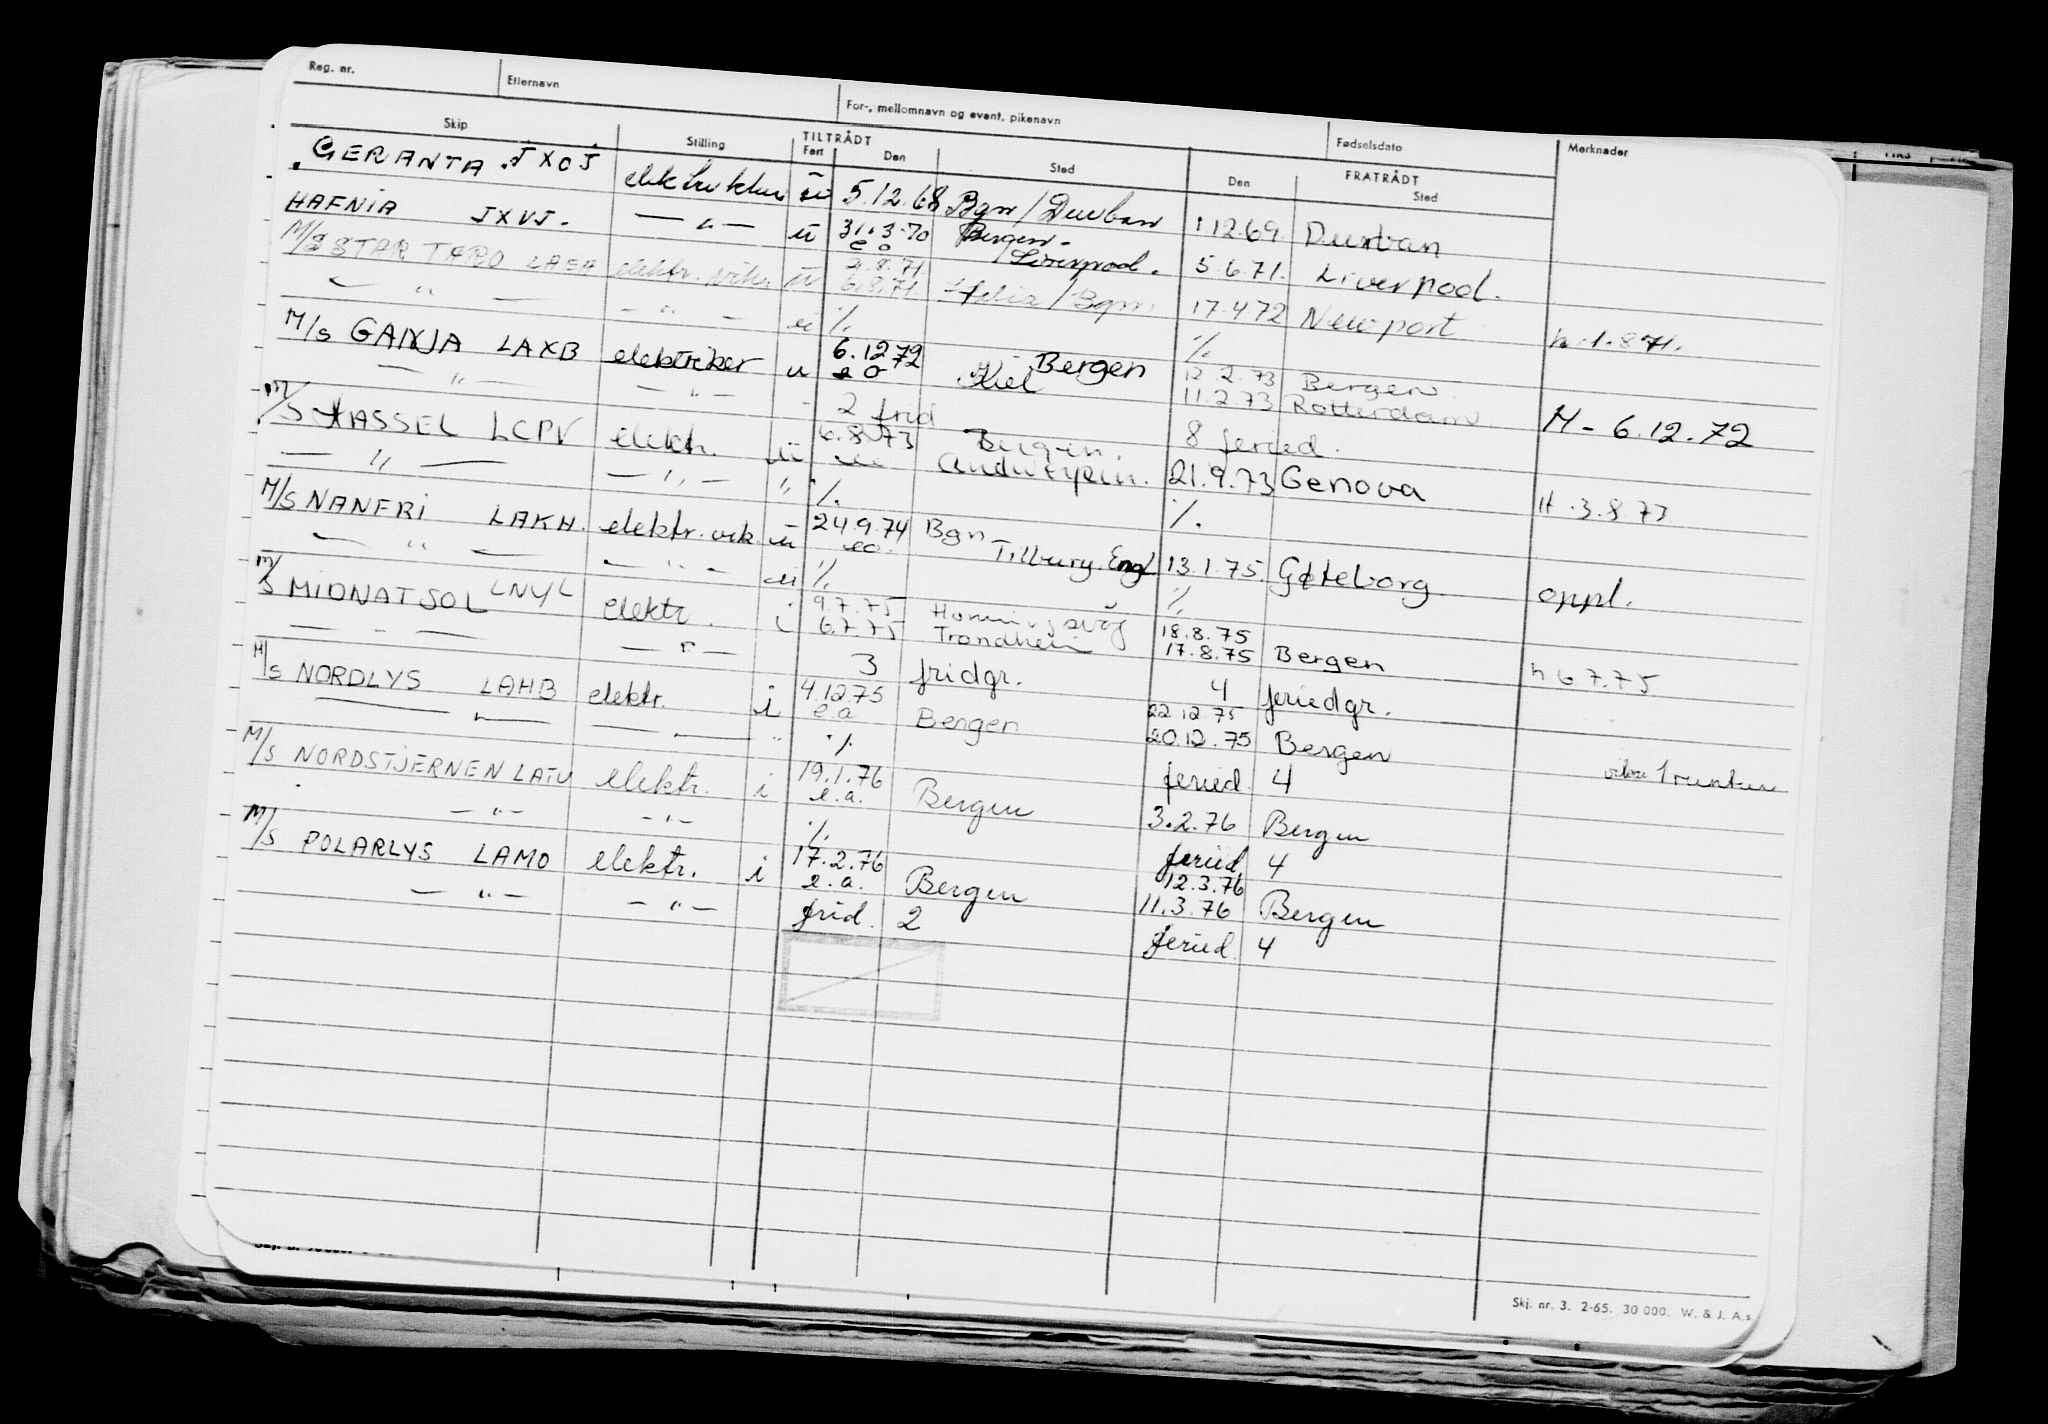 Reg. nr. Etternavn For-, mellomnavn og event. pikenavn Fødselsdato Merknader
Skip Stilling TILTRÅDT FRATRÅDT
Fart Den Sted Den Sted
GERANTA JXCJ elektriker u 5.12.68 Bgn / Durban 1 12 69. Durban
HAFNIA JXVJ. — " — u 31.3.70 Bergen -
e o / Liverpool. 5.6.71. Liverpool.
M/S STAR TARO LAEA elektr. vik. u 2.8.71.
6.8.71. / Bgn. 17.4.72 Newport h. 1.8 71.
— " — — " — u %. %.
M/S GANJA LAXB elektriker u 6.12 72 Bergen 12.2.73 Bergen
e o Kiel 11.2.73 Rotterdam. M - 6.12.72
— " — — " — 2 frid 8 feried.
M/S KASSEL LCPV elektr. u 6.8.73 Bergen.
Antwerpen. 21.9.73 Genova H. 3.8 73
— " — — " — " %. %.
M/S NANFRI LAKH. elektr. vik. u 24.9.74 Bgn
eo. Tilbury. Engl. 13.1.75. Gøteborg oppl.
— " — — " — u % %
M/S MIDNATSOL LNYL elektr. i 9.7.75 Honningsvåg 18.8.75
6.7.75 Trondheim 17.8.75 Bergen h 6.7.75
— " — — " — 3 fridgr. 4 feriedgr.
M/S NORDLYS LAHB elektr. i 4.12.75 22.12.75
e.a Bergen 20.12.75 Bergen
— " — — " — " % feried. 4
M/S NORDSTJERNEN LATU elektr. i 19.1.76
e.a. Bergen 3.2.76 Bergen
— " — — " — % feried. 4
M/S POLARLYS LAMO elektr. i 17.2.76 12.3.76
e.a. Bergen 11.3.76 Bergen
— " — — " — frid. 2 feried. 4
Skj. nr. 3. 2-65. 30 000. W. & J. A.s